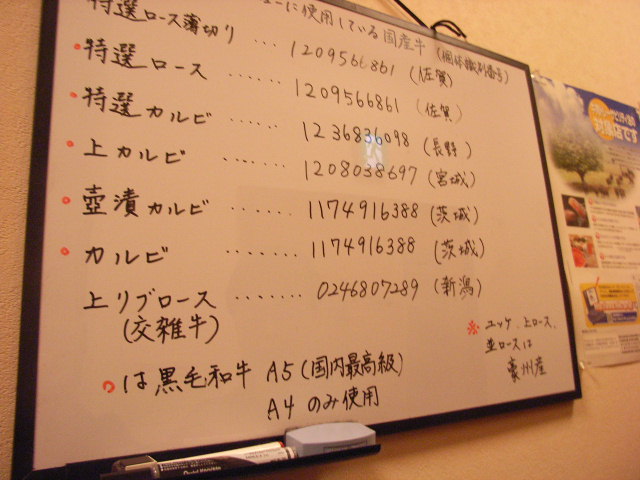 ューに使用している国産牛(個体識別番号)
特選ロース薄切り ‥‥ 1209566861 (佐賀)
特選ロース ‥‥‥ 1209566861 (佐賀)
特選カルビ ‥‥‥ 1236836098 (長野)
上カルビ ‥‥‥ 1208038697 (宮城)
壺漬カルビ ‥‥‥ 1174916388 (茨城)
カルビ ‥‥‥ 1174916388 (茨城)
上リブロース ‥‥‥ 0246807289 (新潟)
(交雑牛)
○は黒毛和牛 A5(国内最高級)
A4 のみ使用
※ユッケ、上ロース、
並ロースは
豪州産
対応店です